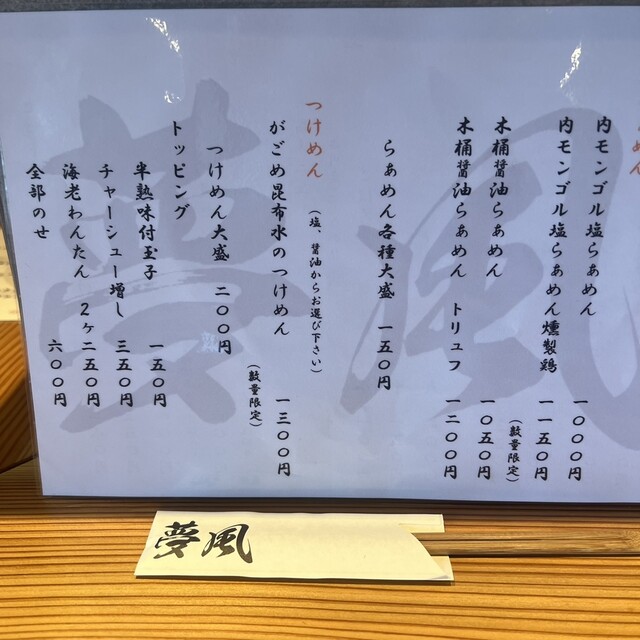 めん
内モンゴル塩らぁめん 一〇〇〇円
内モンゴル塩らぁめん燻製鶏 一一五〇円
(数量限定)
木桶醤油らぁめん 一〇五〇円
木桶醤油らぁめん トリュフ 一二〇〇円
らぁめん各種大盛 一五〇円
つけめん
(塩、醤油からお選び下さい)
がごめ昆布水のつけめん 一三〇〇円
(数量限定)
つけめん大盛 二〇〇円
トッピング
半熟味付玉子 一五〇円
チャーシュー増し 三五〇円
海老わんたん 2ヶ二五〇円
全部のせ 六〇〇円
夢風
夢風